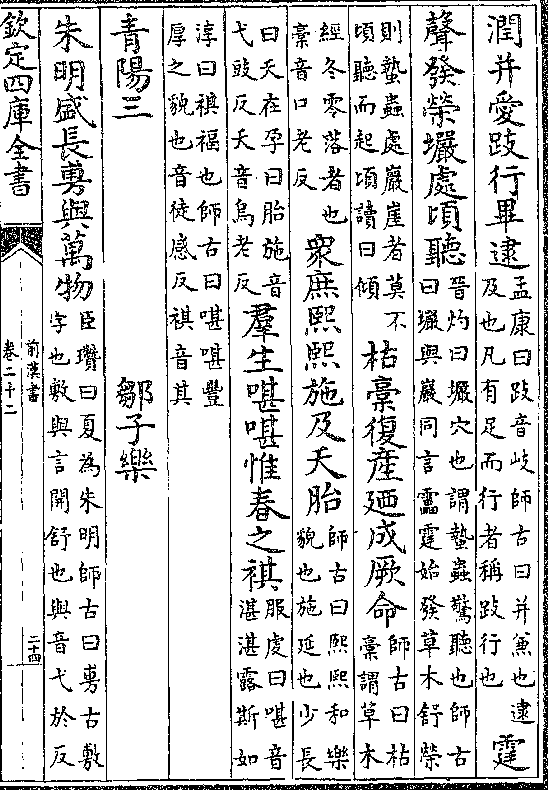 潤并愛跂行畢逮孟康曰跂音岐師古曰并兼也逮及也凡有足而行者稱跂行也霆
聲發榮壧處頃聽晉灼曰壧穴也謂蟄蟲驚聽也師古曰壧與巖同言靁霆始發草木舒榮
則蟄蟲處巖崖者莫不頃聽而起頃讀曰傾枯槀復產廼成厥命師古曰枯槀謂草木
經冬零落者也槀音口老反衆庶熙熙施及夭胎師古曰熙熙和樂貌也施延也少長
曰夭在孕曰胎施音弋豉反夭音烏老反羣生啿啿惟春之祺服虔曰啿音湛湛露斯如
淳曰祺福也師古曰啿啿豐厚之貌也音徒感反祺音其
青陽三 鄒子樂
朱明盛長旉與萬物臣瓚曰夏為朱明師古曰旉古敷字也敷與言開舒也與音弋於反
欽定四庫全書
前漢書
卷二十二
二十四